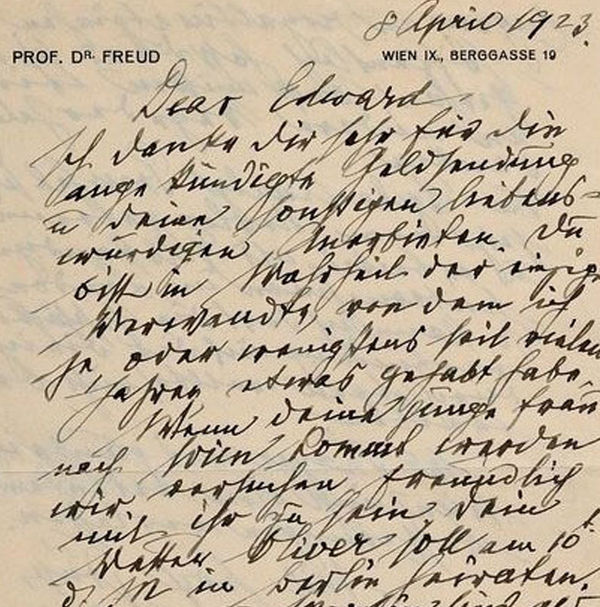 8 April 1923.
PROF. DR. FREUD
WIEN IX., BERGGASSE 19
Dear Edward
Ich danke dir sehr für die
angekündigte Geldsendung
u deine sonstigen liebens-
würdigen Anerbieten. Du
bist in Wahrheit der einzige
Verwandte, von dem ich
je oder wenigstens seit vielen
Jahren etwas gehabt habe.
Wenn deine junge Frau
nach Wien kommt werden
wir versuchen freundlich
mit ihr zu sein Dein
Vetter Oliver soll am 10t
d. M in Berlin heiraten.